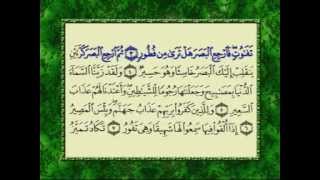 تَفَٰوُتٍ فَٱرْجِعِ ٱلْبَصَرَ هَلْ تَرَىٰ مِن فُطُورٍ ٣ ثُمَّ ٱرْجِعِ ٱلْبَصَرَ كَرَّتَيْنِ
يَنقَلِبْ إِلَيْكَ ٱلْبَصَرُ خَاسِئًا وَهُوَ حَسِيرٌ ٤ وَلَقَدْ زَيَّنَّا ٱلسَّمَآءَ
ٱلدُّنْيَا بِمَصَٰبِيحَ وَجَعَلْنَٰهَا رُجُومًا لِّلشَّيَٰطِينِ وَأَعْتَدْنَا لَهُمْ عَذَابَ
ٱلسَّعِيرِ ٥ وَلِلَّذِينَ كَفَرُوا۟ بِرَبِّهِمْ عَذَابُ جَهَنَّمَ وَبِئْسَ ٱلْمَصِيرُ
٦ إِذَآ أُلْقُوا۟ فِيهَا سَمِعُوا۟ لَهَا شَهِيقًا وَهِىَ تَفُورُ ٧ تَكَادُ تَمَيَّزُ